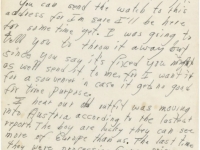 You can send the watch to this
address for I'm sure I'll be here
for some time yet. I was going to
tell you to throw it away but
since you say it's fixed you might
as well send it to me, for I want it
for a souvenir in case it gets no good
for time purposes.
I hear our old outfit was moving
into Austria according to the last
report. The boys are lucky they can see
more of Europe than us. The last time
they were